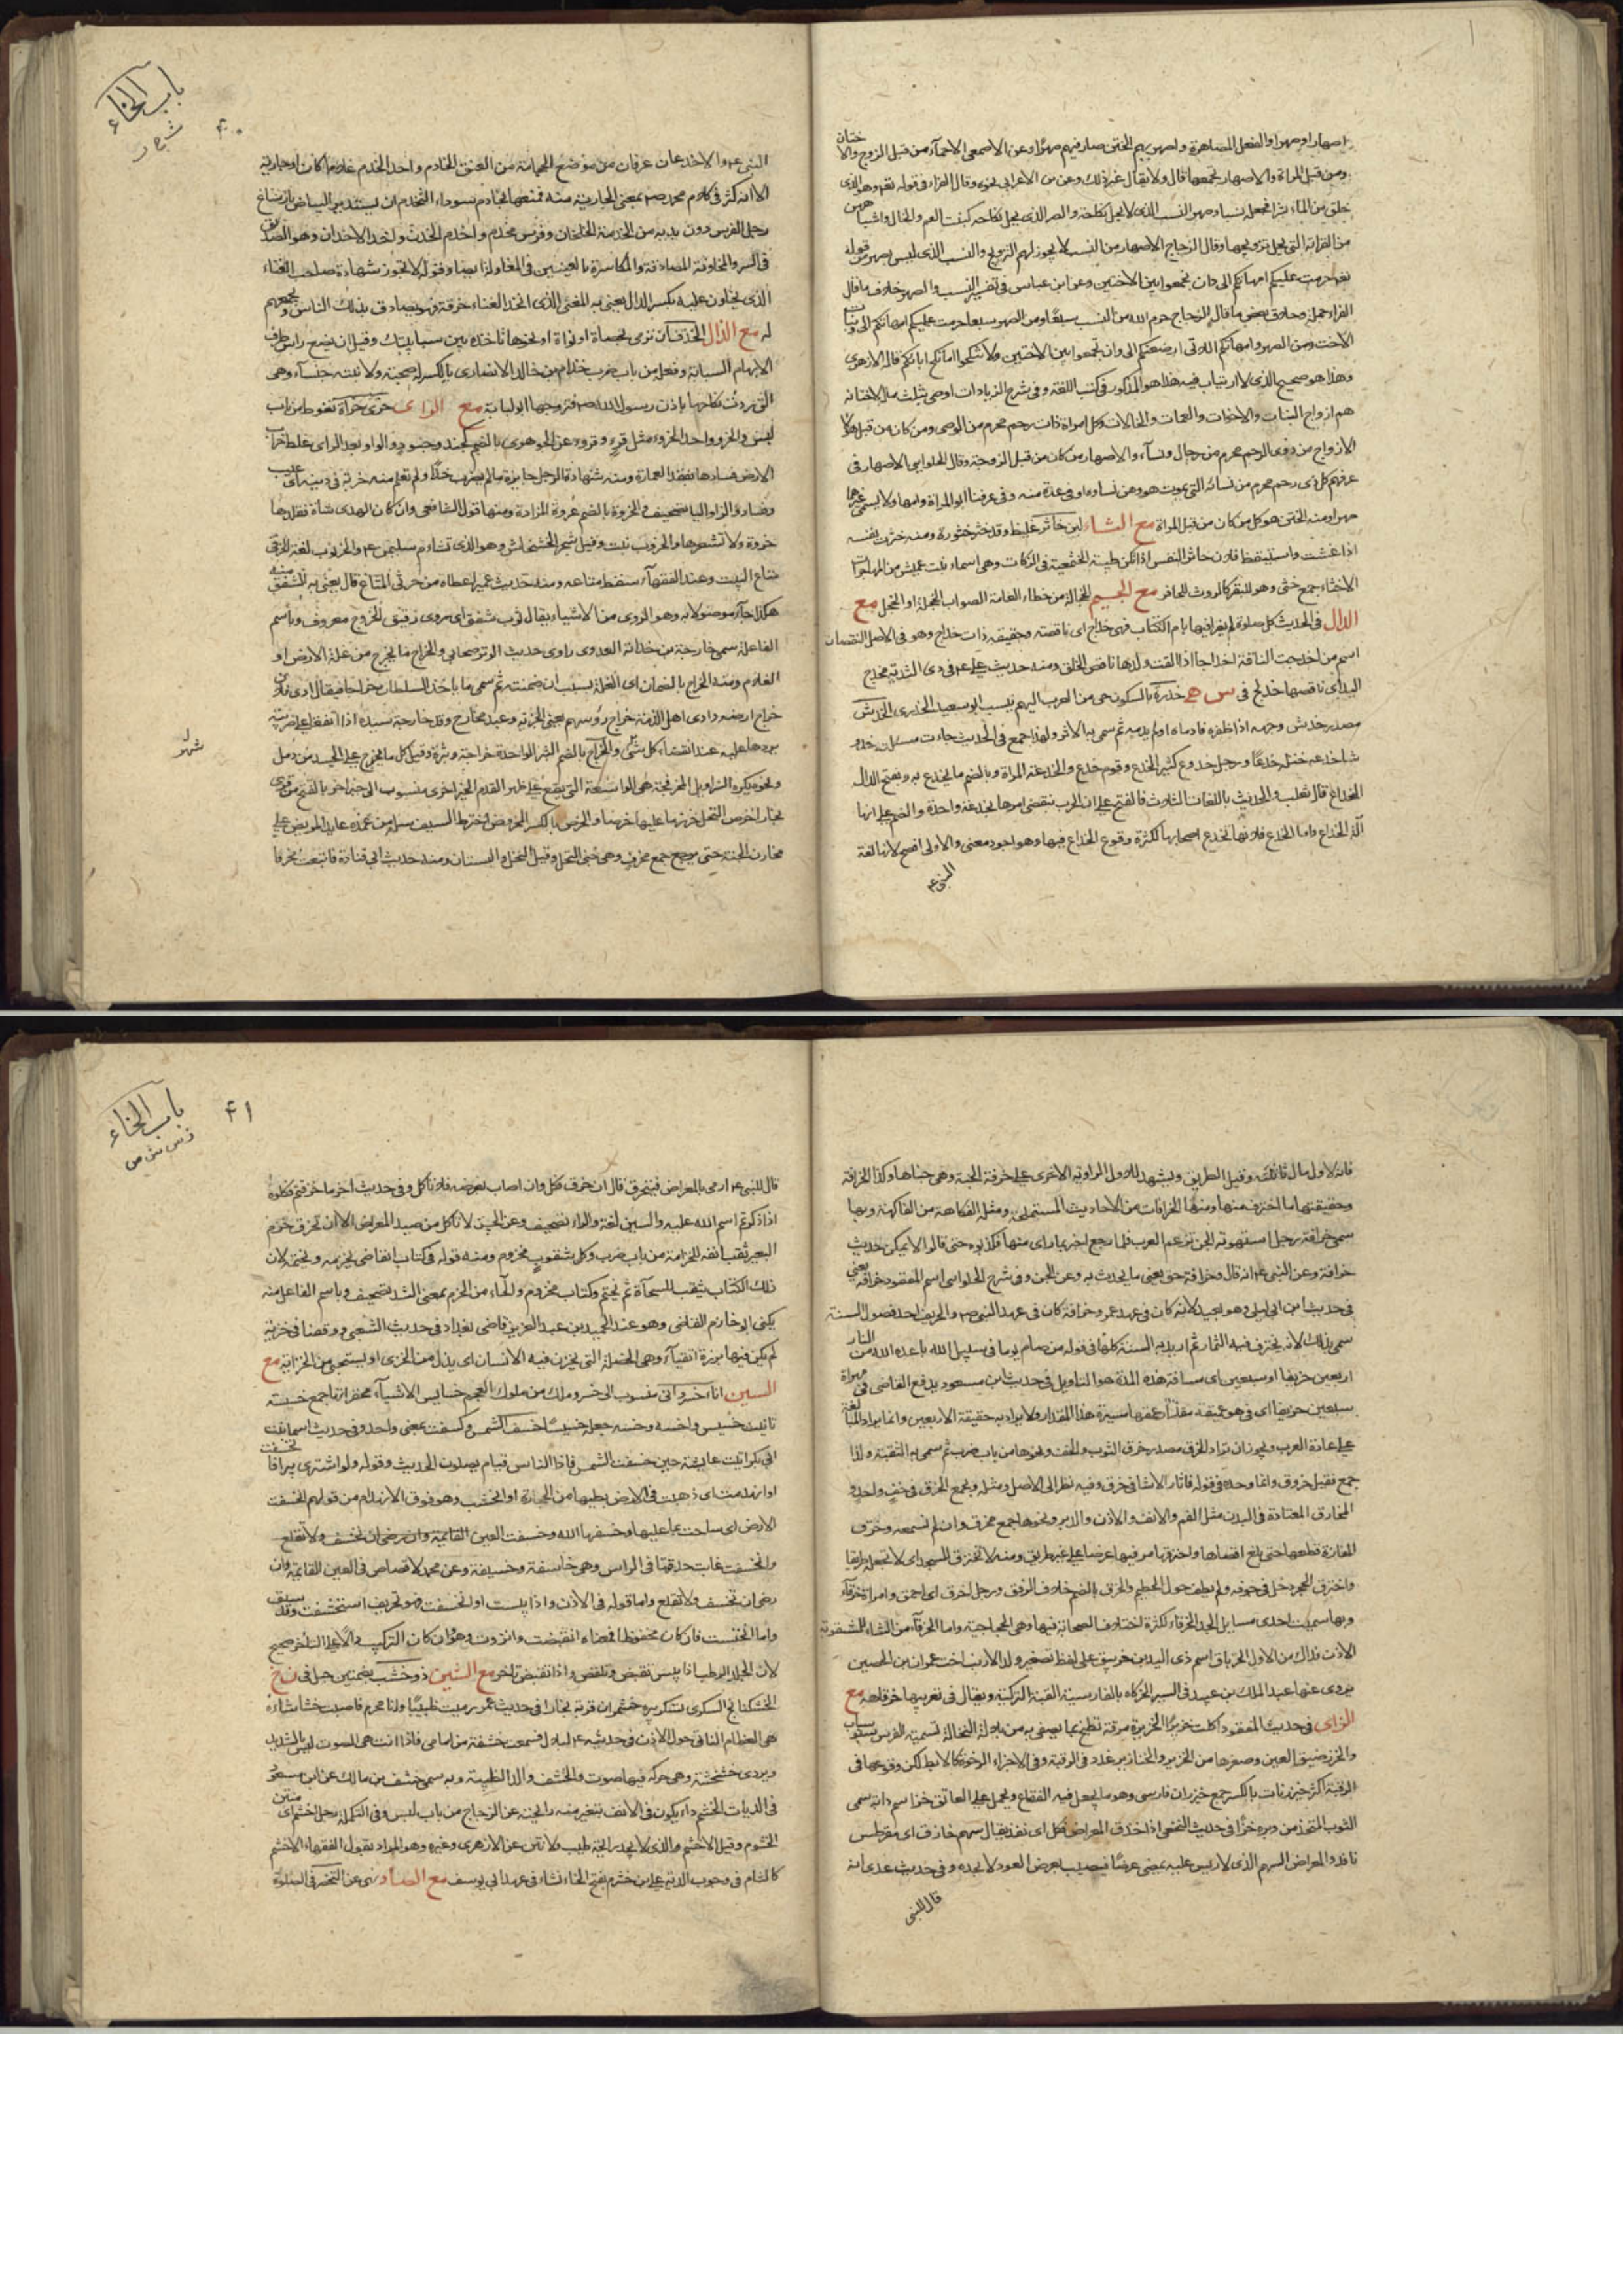 اصهار او صهرا والفعل المصاهرة واصهر بهم الختن صار فيهم صهرا وعن الاصمعي الاحماء من قبل الزوج والاختان
ومن قبل المراة والاصهار تجمعها قال ولا يقال غير ذلك وعن ابن الاعرابي نحوه وقال الفراء في قوله تعه وهو الذي
خلق من الماء بشرا فجعله نسبا وصهرا النسب الذي لا يحل نكاحه والصهر الذي يحل نكاحه كبنت العم والخال واشباههن
من القرابة التي يحل تزويجها وقال الزجاج الاصهار من النسب لا يجوز لهم التزويج والنسب الذي ليس بصهر من قوله
تعه حرمت عليكم امهاتكم الى وان تجمعوا بين الاختين وعن ابن عباس في تفسير النسب والصهر خلاف ما قال
الفراء جملة وخلاف بعض ما قال الزجاج حرم الله من النسب سبعا ومن الصهر سبعا حرمت عليكم امهاتكم الى وبنات
الاخت ومن الصهر وامهاتكم اللاتي ارضعنكم الى وان تجمعوا بين الاختين ولا تنكحوا ما نكح اباؤكم قال الازهري
وهذا هو صحيح الذي لا ارتياب فيه هذا هو المذكور في كتب اللغة وفي شرح الزيادات اوصى بثلث ماله لاختانه
هم ازواج البنات والاخوات والعمات والخالات وكل امراة ذات رحم محرم من الموصى ومن كان من قبل هؤلاء
الازواج من ذوي الرحم محرم من رجال ونساء والاصهار من كان من قبل الزوجة وقال الحلوايي الاصهار في
عرفهم كل ذي رحم محرم من نسائه التي يموت هو وهن نساؤه او في عدة منه وفي عرفنا ابو المراة وامها ولا يسمى غيرهما
صهرا ومنه الختن هو كل من كان من قبل المراة مع الثاء لبن خاثر غليظ وقد خثر خثورة ومنه خثرت نفسه
اذا غثت واستيقظ فلان خاثر النفس اذا لم تكن طيبة الخثعمية في الزكات وهي اسماء بنت عميس من المهاجرات
الاخثاء جمع خثي وهو للبقر كالروث للحافر مع الجيم الخجالة من خطاء العامة الصواب الخجلة او الخجل مع
الدال في الحديث كل صلوة لم يقرا فيها بام الكتاب فهي خداج اي ناقصة وحقيقته ذات خداج وهو في الاصل النقصان
اسم من اخدجت الناقة اخداجا اذا القت ولدها ناقص الخلق ومنه حديث علي عم في ذي الثدية مخدج
اليد اي ناقصها خديج في س ح خدرة بالسكون حي من العرب اليهم ينسب ابو سعيد الخدري الخدش
مصدر خدش وجهه اذا ظفره فادماه او لم يدمه ثم سمي به الاثر ولهذا جمع في الحديث جاءت مسئلته خدو
شا خدعه ختله خدعا ورجل خدوع كثير الخدع وقوم خدع والخدعة المراة وبالضم ما يخدع به وبفتح الدال
الخداع قال ثعلب والحديث باللغات الثلاث فالفتح على ان الحرب ينقضي امرها بخدعة واحدة والضم على انها
آلة الخداع واما الخدع فلانها تخدع اصحابها لكثرة وقوع الخداع فيها وهو اجود معنى والاولى افصح لانها لغة
النبي عم
باب الخاء
۴۰
النبي عم والاخدعان عرقان من موضع الحجامة من العنق الخادم واحد الخدم غلاما كان او جارية
الا انه كثر في كلام محمد رحمه بمعنى الجارية منه فمتعها بخادم سوداء التخدم ان يستدير البياض بارساغ
رجلي الفرس دون يديه من الخدمة الخلخال وفرس مخدم واخدم الخدن واحد الاخدان وهو الصديق
في السر والمخادنة المصادقة والمكاسرة بالعينين في المغازلة ايضا وقوله لا تجوز شهادة صاحب الغناء
الذي يخادن عليه بكسر الدال يعني به المغني الذي اتخذ الغناء حرفة فهو يصادق بذلك الناس ويجمعهم
له مع الذال الخذف ان ترمي بحصاة او نواة او نحوها تاخذه بين سبابتيك وقيل ان تضع راس طرف
الابهام السبابة وفعله من باب ضرب خذام بن خالد الانصاري بالكسر له صحبة ولابنته خنساء وهي
التي ردت نكاحها باذن رسول الله صم فتزوجها ابو لبابة مع الزاي خرئ خراءة تغوط من باب
لبس والخرو واحد الخروء مثل قرء وقروء عن الجوهري بالضم كجند وجنود والواو بعد الراي غلط خراب
الارض فسادها بفقد العمارة ومنه شهادة الرجل جايزة ما لم يضرب حدا ولم تعلم منه خربة في دينه اي عيب
وفساد والزاو اليا تصحيف والخربة بالضم عروة المزادة ومنها قول الشافعي وان كان الهدي شاة فقلدها
خربة ولا تشعرها والخروب نبت وقيل شجر الخشخاش وهو الذي تشاءم سليمن عم والخرنوب لغة الخرثي
متاع البيت وعند الفقهاء سقط متاعه ومنه حديث عمير اعطاه من خرثي المتاع قال يعني به الشفق منه
هكذا جاء موصولا به وهو الردي من الاشياء يقال ثوب شفق اي ردي رقيق الخروج معروف وباسم
الفاعلة سمي خارجة بن حذافة العدوي راوي حديث الوتر صحابي والخراج ما يخرج من غلة الارض او
الغلام ومنه الخراج بالضمان اي الغلة بسبب ان ضمنته ثم سمي ما ياخذ السلطان خراجا فيقال ادى فلان
خراج ارضه وادى اهل الذمة خراج رؤسهم يعني الجزية وعبد مخارج وقد خارجه سيده اذا اتفقا على ضريبة
يردها عليه عند انقضاء كل شهر والخراج بالضم البثر الواحدة خراجة وبثرة وقيل كل ما يخرج على الجسد من دمل
ونحوه يكره السراويل المخرفجة هي الواسعة التي تقع على ظهر القدم
مخارف الجنة حتى يرجع جمع مخرف وهي جنى النخل وقيل النخل والبستان ومنه حديث ابي قتادة فابتعت مخرفا
شهر
فانه لاول مال تاثلته وقيل الطريق ويشهد للاول الرواية الاخرى على خرفة الجنة وهي جناها وكذا الخرافة
وحقيقتها ما اخترف منها ومنها الخرافات من الاحاديث المستملحة ومثله الفكاهة من الفاكهة وبها
سمي خرافة رجل استهوته الجن تزعم العرب فلما رجع اخبر بما راى منها فكذبوه حتى قالوا لما لا يمكن حديث
خرافة وعن النبي عم انه قال وخرافة حق يعني ما يحدث به عن الجن وفي شرح الحلواىي اسم المفقود خرافة يعني
في حديث ابن ابي ليلى وهو بعيد لانه كان في عهد عمر وخرافة كان في عهد النبي صم والخريف احد فصول السنة
سمي بذلك لانه يخترف فيه الثمار ثم اريد به السنة كلها في قوله من صام يوما في سبيل الله باعده الله من النار
اربعين خريفا او سبعين اي مسافة هذه المدة هو التاويل في حديث ابن مسعود يدفع القاضي في مهواة
سبعين خريفا اي في هوة عميقة مقدار عمقها مسيرة هذا المقدار ولا يراد به حقيقة الاربعين وانما يراد المبالغة
على عادة العرب ويجوز ان تراد الخرق مصدر خرق الثوب والخف ونحوهما من باب ضرب ثم سمي به الثقبة ولذا
جمع فقيل خروق وانما وحده في قوله
المخارق المعتادة في البدن مثل الفم والانف والاذن والدبر ونحوها جمع مخرق وان لم نسمعه وخرق
المفازة قطعها حتى بلغ اقصاها واخترقها مر فيها عرضا على غير طريق ومنه لا تخترق المسجد اي لا تجعله طريقا
واخترق الحجر دخل في جوفه ولم يطف حول الحطيم والخرق بالضم خلاف الرفق ورجل اخرق اي احمق وامراة خرقاء
وبها سميت احدى مسايل الجد الخرقاء لكثرة اختلاف الصحابة فيها وهي الحجاجية واما الخرقاء من الشاء للمثقوبة
الاذن فذاك من الاول الخرباق اسم ذي اليدين خرنيق على لفظ تصغير ولد الارنب اخت عمران بن الحصين
يروي عنها عبد الملك بن عبيد في السير الخركاه بالفارسية القبة التركية ويقال في تعريبها خرقاهة مع
الزاي في حديث المفقود اكلت خزيرا الخزيرة مرقة تطبخ بما يصفى به من بلالة النخالة تسميه الفرس سبوساب
والخزر ضيق العين وصغرها من الخزير والخنازير غدد في الرقبة وفي الاجزاء الرخوة كالابط لكن وقوعها في
الرقبة اكثر خيزرانات بالكسر جمع خيزران فارسي وهو ما يجعل فيه الفقاع ويحمل على العاتق خز اسم دابة سمي
الثوب المتخذ من وبره خزا في حديث النخعي اذا خزق المعراض فكل اي نفذ يقال سهم خازق اي مقرطس
نافذ والمعراض السهم الذي لا ريش عليه يمضي عرضا فيصيب بعرض العود لا بحده وفي حديث عدي انه
قال للنبي
باب الخاء
ز س ش ص
۴۱
قال للنبي عم ارمي بالمعراض فيخزق قال ان خزق فكل وان اصاب بعرضه فلا تاكل وفي حديث اخر ما خزقتم فكلوه
اذا ذكرتم اسم الله عليه والسين لغة والراء تصحيف وعن الحسن لا تاكل من صيد المعراض الا ان تخزق خزم
البعير ثقب انفه للخزامة من باب ضرب وكل مثقوب مخزوم ومنه قوله في كتاب القاضي يخزمه ويختمه لان
ذلك الكتاب يثقب للسحاة ثم يختم وكتاب مخزوم والحاء من الحزم بمعنى الشد تصحيف وباسم الفاعل منه
يكنى ابو خازم القاضي وهو عبد الحميد بن عبد العزيز قاضي بغداد في حديث الشعبي ووقعنا في خزية
لم نكن فيها بررة اتقياء وهي الخصلة التي يخزى فيها الانسان اي يذل من الخزي او يستحي من الخزاية مع
السين اناء خسرواني منسوب الى خسرو ملك من ملوك العجم خسايس الاشياء محقراتها جمع خسيسة
تانيث خسيس واخسه وخسسه جعله خسيسا خسفت الشمس وكسفت بمعنى واحد وفي حديث اسما بنت
ابي بكر اتيت عايشة حين خسفت الشمس فاذا الناس قيام يصلون الحديث وقوله ولو اشترى بيرا فانخسفت
او انهدمت اي ذهبت في الارض بطيها من الحجارة او الخشب وهو فوق الانهدام من قولهم انخسفت
الارض اي ساخت بما عليها وخسفها الله وخسفت العين القايمة وان رضي ان تخسف ولا تقلع
وانخسفت غابت حدقتها في الراس وهي خاسفة وخسيفة وعن محمد لا قصاص في العين القايمة وان
رضي ان تخسف ولا تقلع واما قوله في الاذن واذا يبست او انخسفت فهو تحريف استخشفت وقد سبق
واما انخنست فان كان محفوظا فمعناه انقبضت وانزوت وهو وان كان التركيب دالا على التاخر صحيح
لان الجلد الرطب اذا يبس تقبض وتقلص واذا تقبض تاخر مع الشين ذو خشب بضمتين جبل في ن خ
في حديث عمر رميت ظبيا وانا محرم فاصبت خششاءه
هي العظم الناتي حول الاذن في حديثه عم لبلال فسمعت خشفة من امامي فاذا انت هي الصوت ليس بالشديد
ويروى خشخشة وهي حركة فيها صوت والخشف ولد الظبية وبه سمي خشف بن مالك عن ابن مسعود
في الديات الخشم داء يكون في الانف يتغير منه رائحته عن الزجاج من باب لبس وفي التكملة رجل اخشم اي منتن
الخيشوم وقيل الاخشم الذي لا يجد رائحة طيب ولا نتن عن الازهري وغيره وهو المراد بقول الفقهاء الاخشم
كالشام في وجوب الدية علي بن خشرم بفتح الخاء نشاء في عهد ابي يوسف مع الصاد نهي عن التخصر في الصلوة